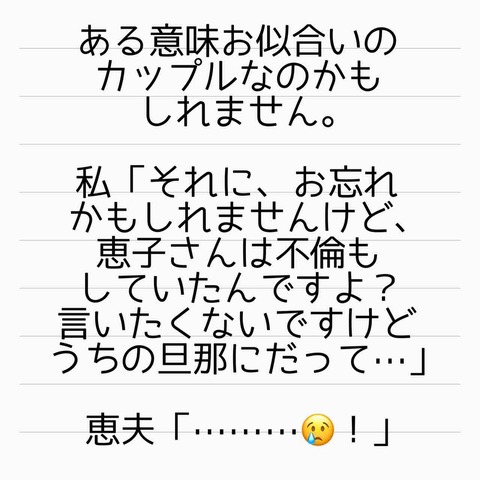 ある意味お似合いの
カップルなのかも
しれません。
私「それに、お忘れ
かもしれませんけど、
恵子さんは不倫も
していたんですよ？
言いたくないですけど
うちの旦那にだって…」
恵夫「………😢！」